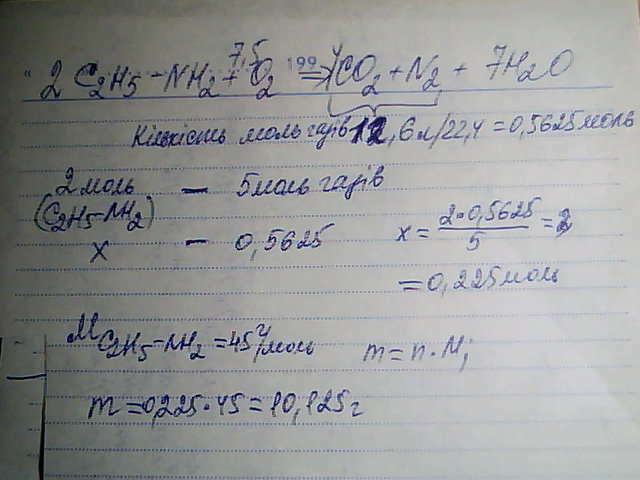 2 C2H5-NH2 + 7,5 O2 => 4CO2 + N2 + 7H2O
Кількість моль газів 12,6л/22,4 = 0,5625 моль
2 моль — 5 моль газів
(C2H5-NH2)
x — 0,5625 x = 2·0,5625/5 =
= 0,225 моль
M C2H5-NH2 = 45 г/моль m = n·M;
m = 0,225·45 = 10,125 г